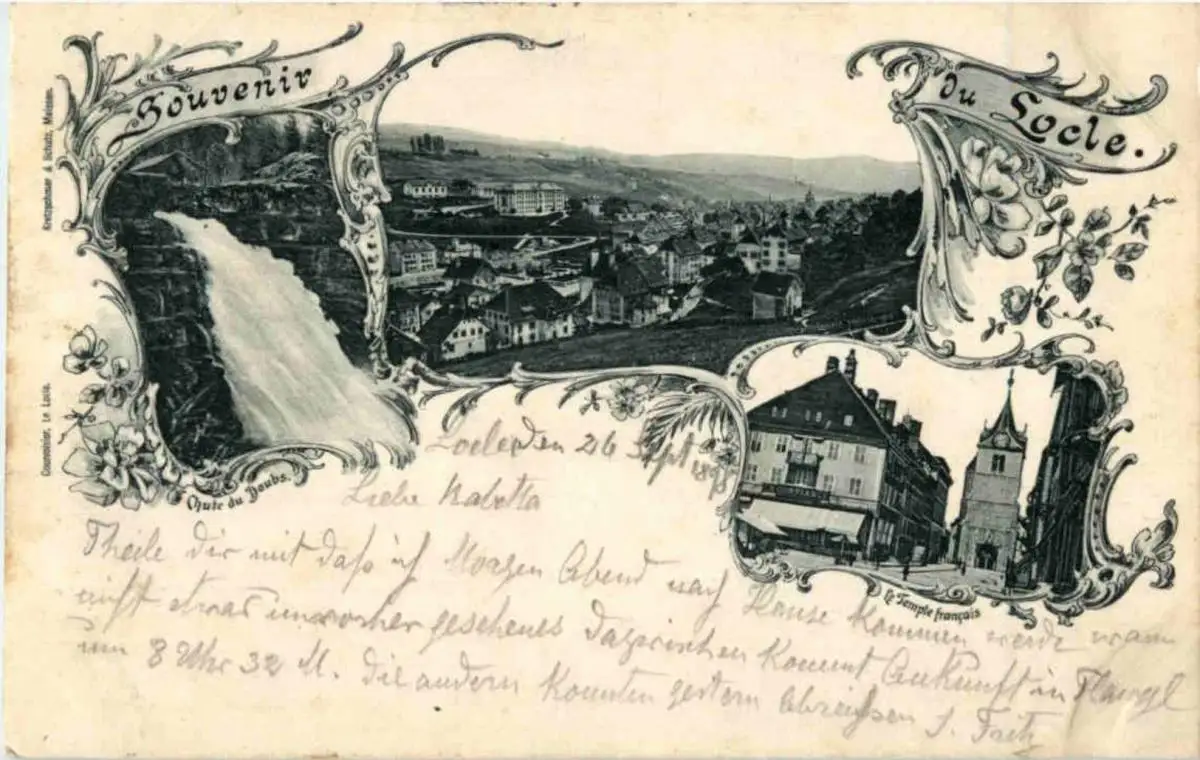 Souvenir
du Locle.
Ketzschmar & Schatz, Meissen.
Courvoisier, Le Locle.
Chute du Doubs.
Le Temple français
Locle den 26 Sept
Liebe
Theile dir mit daß ich Morgen Abend nach Hause kommen werde wann
nicht etwas unvorher gesehenes Dazwischen kommt Ankunft in
um 8 Uhr 32 M. Die andern konnten gestern abreissen S. Fritz